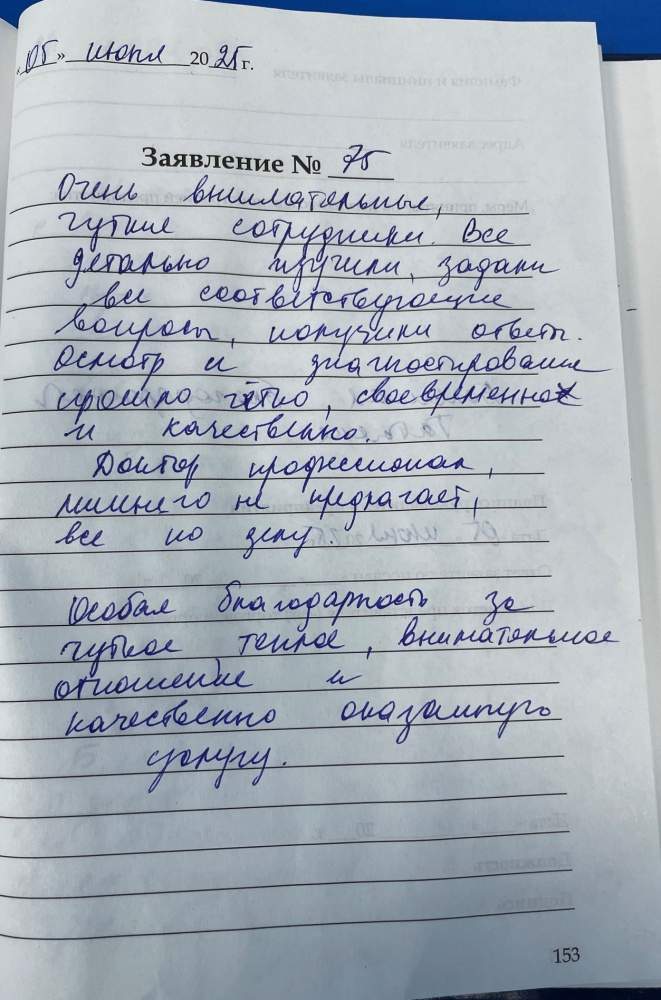 «05» июня 2025 г.
Заявление № 75
Очень внимательные,
чуткие сотрудники. Все
детально изучили, задали
все соответствующие
вопросы, получили ответы.
Осмотр и диагностирование
прошло четко, своевременно
и качественно.
Доктор профессионал,
лишнего не предлагает,
все по делу.
Особая благодарность за
чуткое теплое, внимательное
отношение и
качественно оказанную
услугу.
153